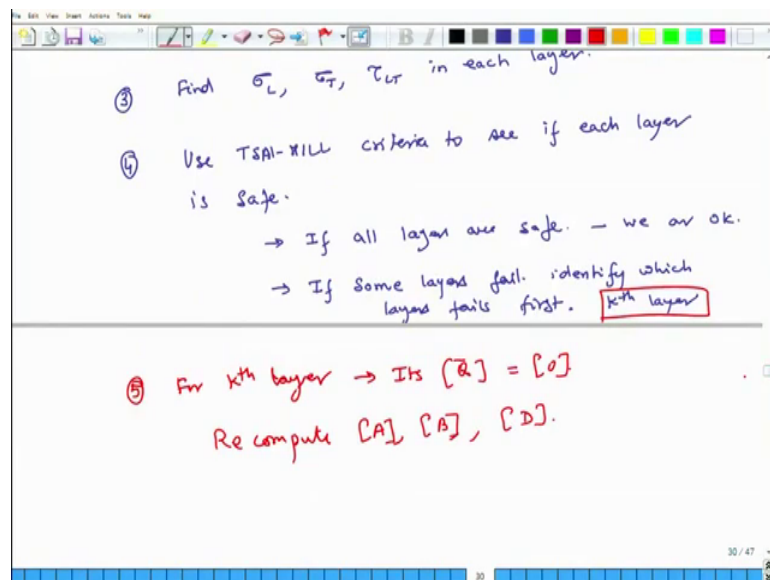 File Edit View Insert Actions Tools Help
B I
③ Find σL, σT, τLT in each layer.
④ Use TSAI-HILL criteria to see if each layer
is safe.
→ If all layers are safe. - we ar ok.
→ If some layers fail. identify which
layers fails first. kth layer
⑤ For kth layer → Its [Q̄] = [0]
Recompute [A], [B], [D].
30 / 47
30